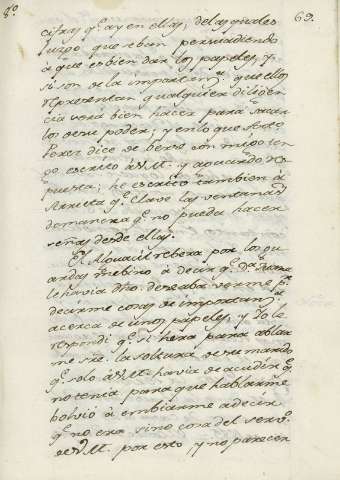 8º 69.
cifras q.e ay en ellas, de las quales
juzgo que se ban persuadiendo
à que es bien dar los papeles, y
si son de la importan.ª que ellos
representan qualquier diligen
cia será bien hacer para sacar
los de su poder; y en lo que
Perez dice de
escrito à V. M. y
puesta; he escrito tambien à
Arrieta q.e clave las ventanas
de manera q.e no pueda hacer
señas desde ellas.
El Alguacil por los gu
ardas vino à decir q.e D.ª
le havia dho. deseaba verme p.ª
decirme cosas de importan.ª
acerca de unos papeles, y Yo le
respondi q.e si hera para ablar
me sre. la soltura de su marido
q.e solo à V. M. havia de acudir q.e
no tenia para que hablarme
bolvió à embiarme à decir
q.e no era sino cosa del serv.º
de V. M. por esto, y no parecer